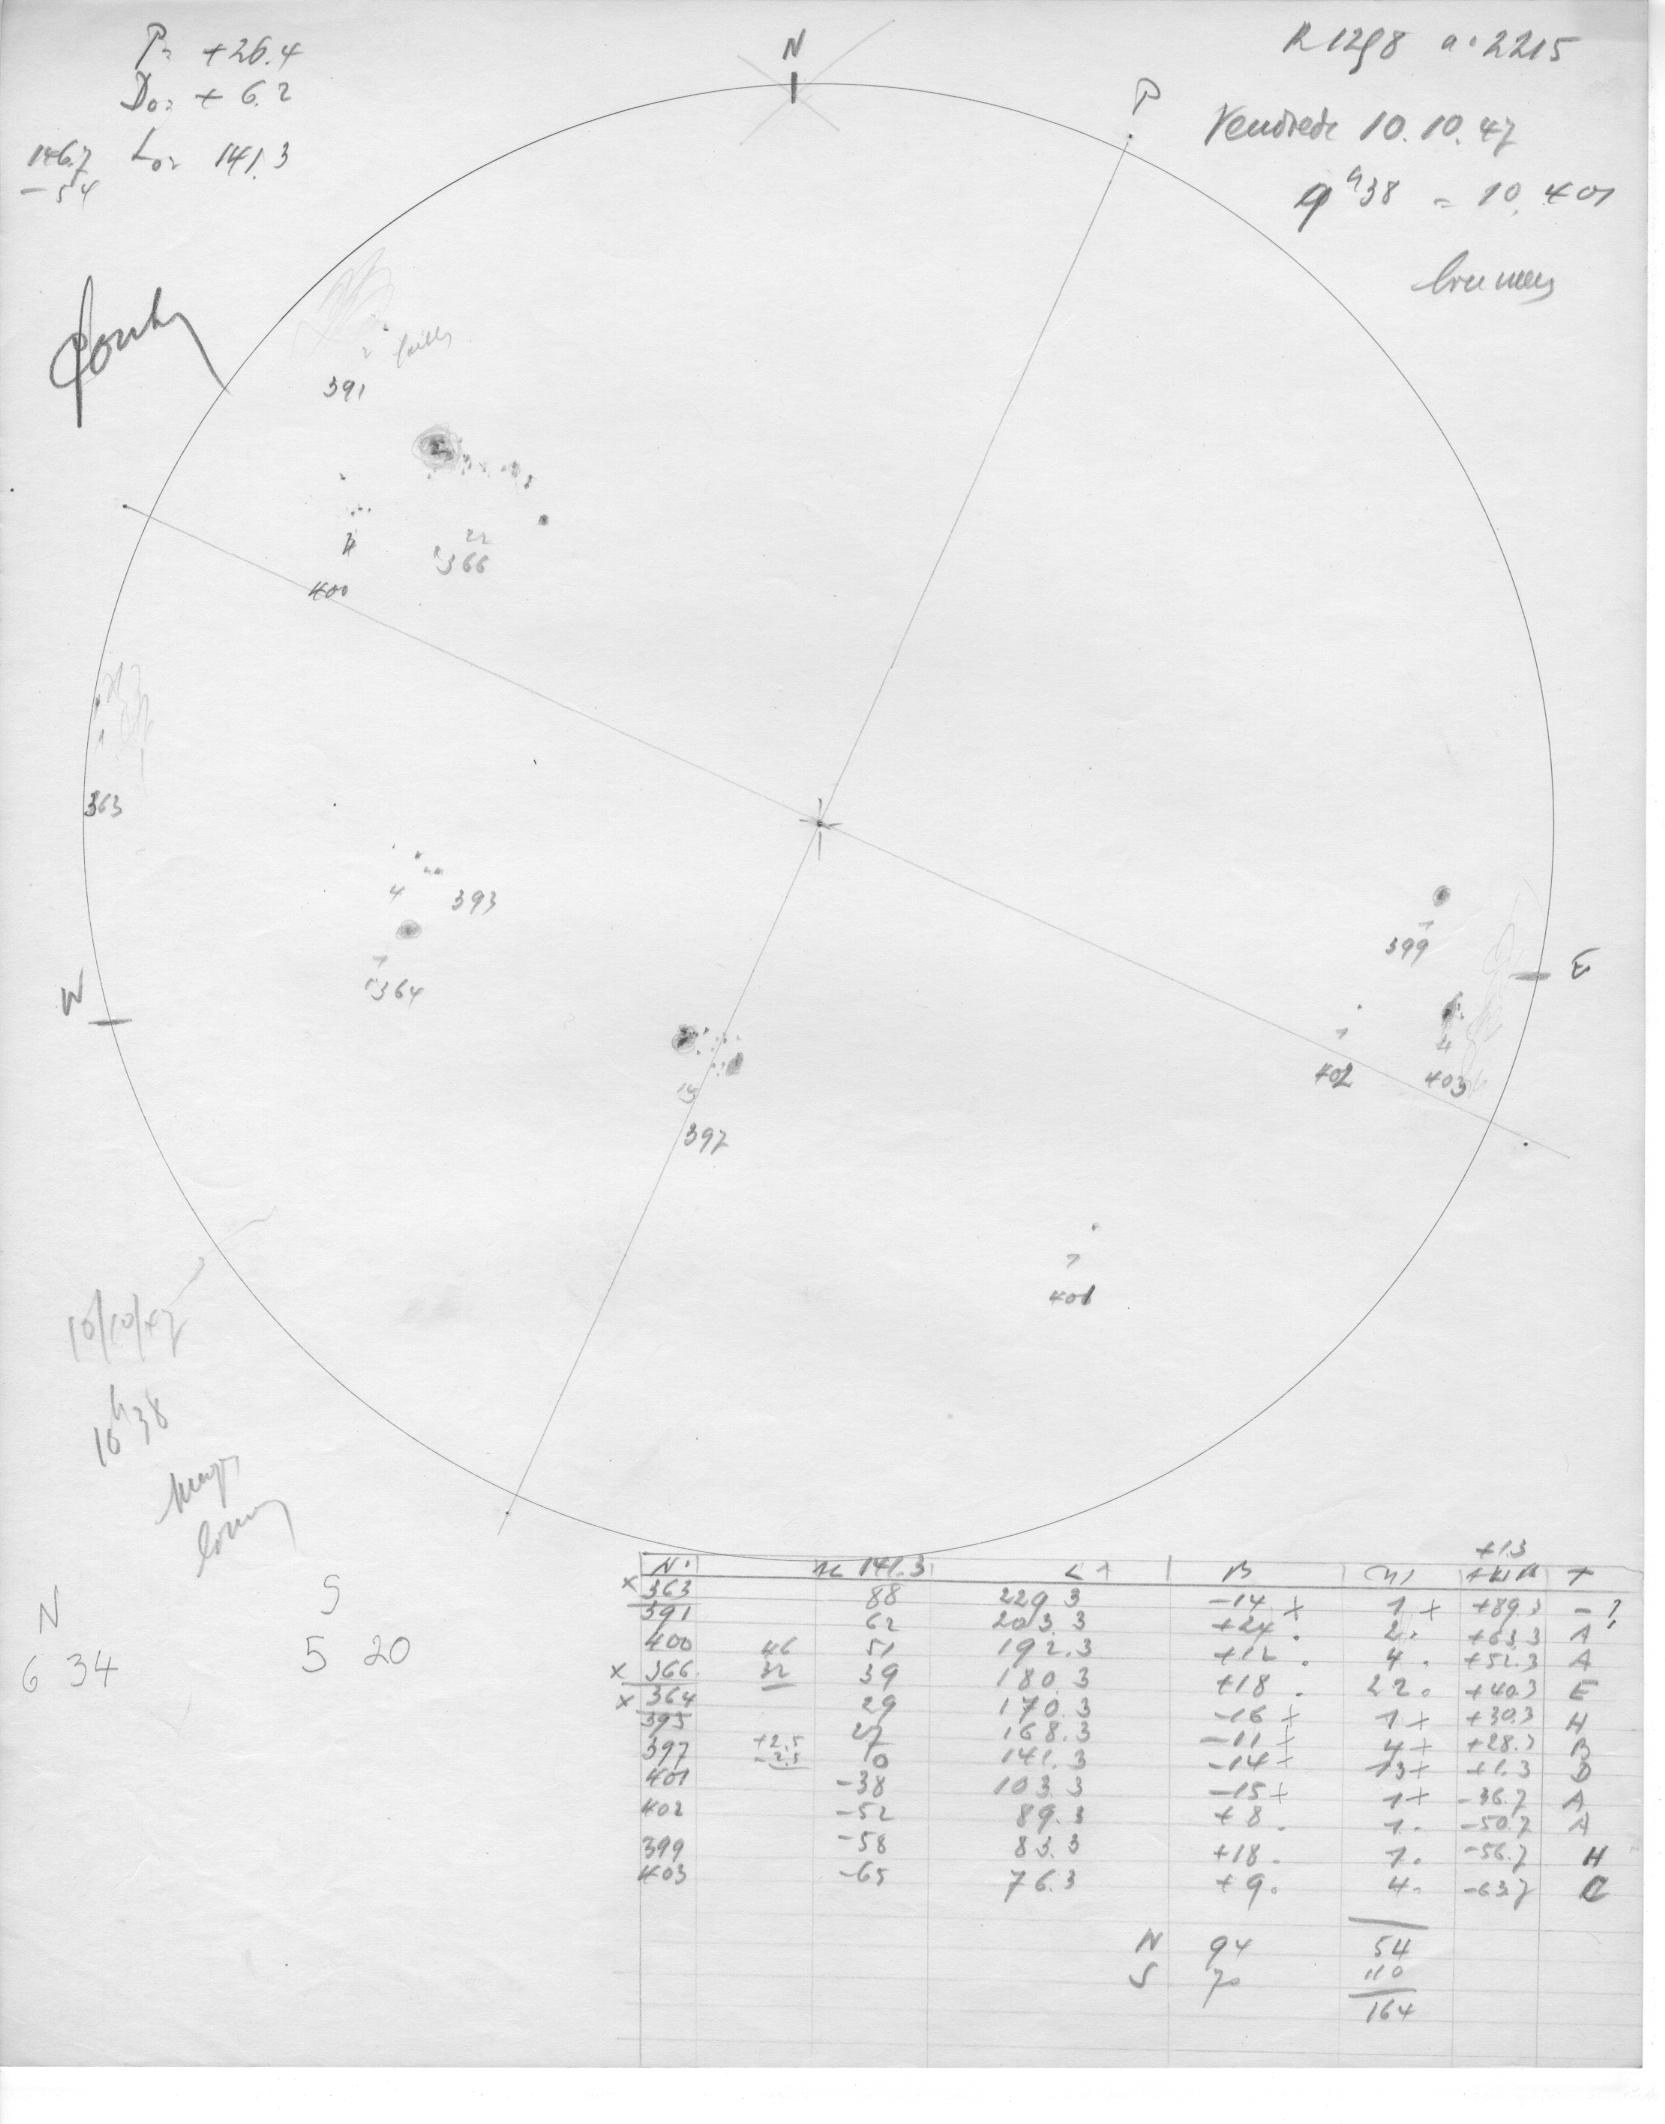 P= +26.4
D₀= + 6.2
146.7 L₀= 141.3
-5.4
N
P
R 1298 a: 2215
Vendredi 10.10.47
9ʰ38 = 10.401
brumeux
2 faibles
391
4
400
22
366
363
4 393
1
364
W
13
397
1
399
E
1
402
4
403
1
401
10/10/47
16ʰ38
N S
6 34 5 20
+1.3
N° 141.3 L B
x 363 88 229.3 -14 + 1 + +89.3 - ?
391 62 203.3 +24 . 2 . +63.3 A
400 46 51 192.3 +12 . 4 . +52.3 A
x 366 32 39 180.3 +18 . 22 . +40.3 E
x 364 29 170.3 -16 + 1 + +30.3 H
393 27 168.3 -11 + 4 + +28.3 B
397 +2.5 -2.5 0 141.3 -14 + 13 + +1.3 D
401 -38 103.3 -15 + 1 + -36.7 A
402 -52 89.3 +8 . 1 . -50.7 A
399 -58 83.3 +18 . 1 . -56.7 H
403 -65 76.3 +9 . 4 . -63.7 C
N 94 54
S 70 110
164